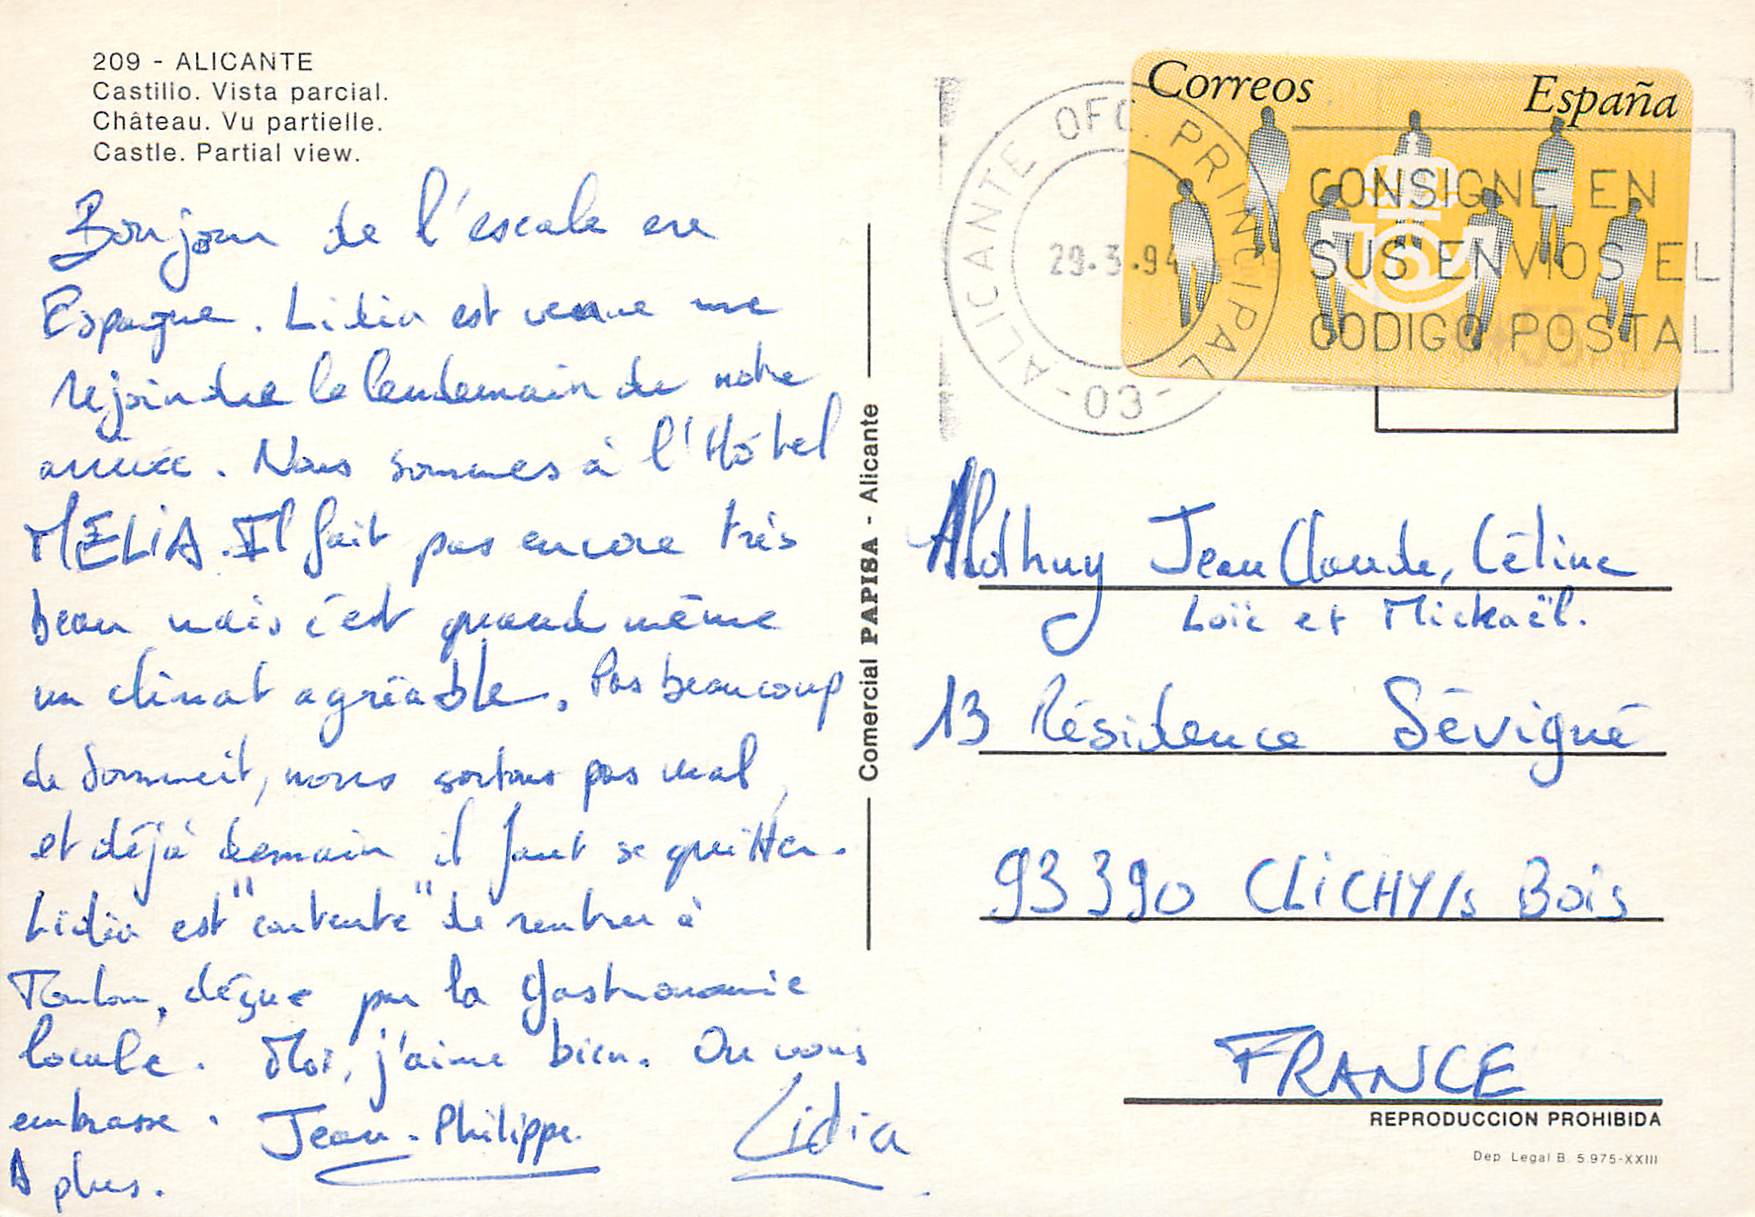 209 - ALICANTE
Castillo. Vista parcial.
Château. Vu partielle.
Castle. Partial view.
Bonjour de l'escale en
Espagne. Lidia est venue me
rejoindre le lendemain de notre
arrivée. Nous sommes à l'Hôtel
MELIA. Il fait pas encore très
beau mais c'est quand même
un climat agréable. Pas beaucoup
de sommeil, nous sortons pas mal,
et déjà demain il faut se quitter.
Lidia est "contente" de rentrer à
Toulon, déçue par la gastronomie
locale. Moi, j'aime bien. On vous
embrasse. Jean-Philippe. Lidia
A plus.
Comercial PAPISA - Alicante
Correos España
ALICANTE OFC. PRINCIPAL
29.3.94
-03-
CONSIGNE EN
SUS ENVIOS EL
CODIGO POSTAL
Jean Claude, Céline
Loïc et Mickaël.
13 Résidence Sévigné
93390 CLiCHY/s Bois
FRANCE
REPRODUCCION PROHIBIDA
Dep. Legal B. 5.975-XXIII